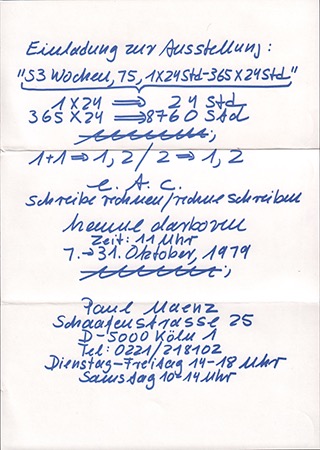 Einladung zur Ausstellung:
"53 Wochen, 75, 1x24Std-365x24Std"
1x24 ⇒ 24 Std
365x24 ⇒ 8760 Std
1+1 ⇒ 1,2/2 ⇒ 1,2
e. A. C.
schreibe rechnen/rechne schreiben
hanne darboven
Zeit: 11 Uhr
7.→31. Oktober, 1979
Paul Maenz
Schaafenstrasse 25
D-5000 Köln 1
Tel: 0221/218102
Dienstag-Freitag 14-18 Uhr
Samstag 10-14 Uhr